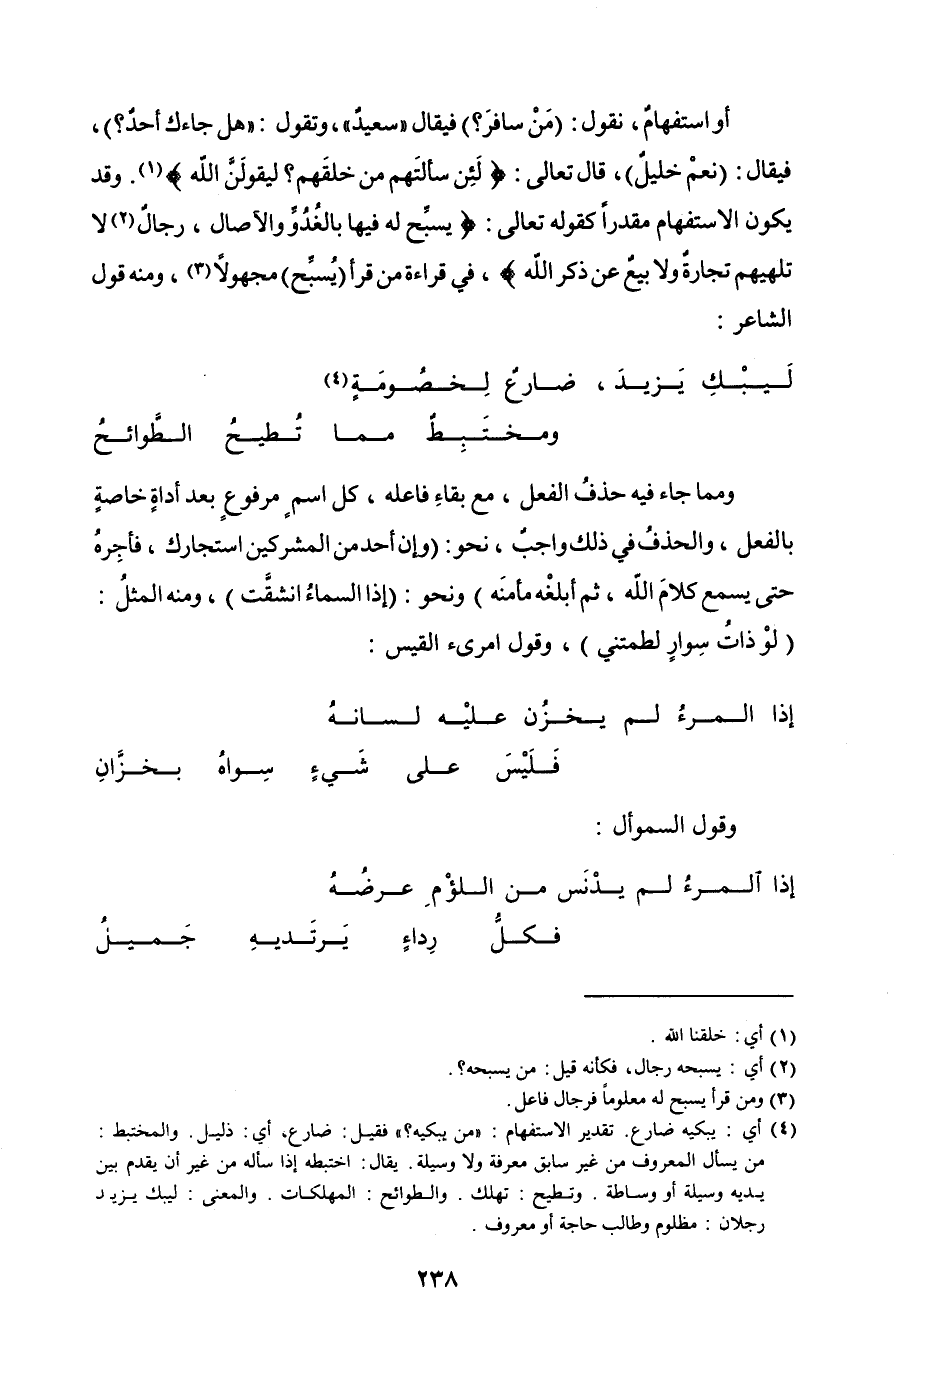 أو استفهامٌ، نقول : (مَنْ سافرَ؟) فيقال «سعيدٌ»، وتقول : «هل جاءك أحدٌ؟)،
فيقال : (نعمْ خليلٌ)، قال تعالى : ﴿ لَئِن سألتَهم من خلقَهم؟ ليقولَنَّ اللّه ﴾(١). وقد
يكون الاستفهام مقدراً كقوله تعالى : ﴿ يسبَّح له فيها بالغُدُوِّ والآصال ، رجالٌ(٢) لا
تلهيهم تجارةٌ ولا بيعٌ عن ذكر اللّه ﴾ ، في قراءة من قرأ (يُسبَّح) مجهولاً(٣) ، ومنه قول
الشاعر :
لَـيـبْـكِ يَـزيـدَ ، ضـارعٌ لِـخـصُـومَـةٍ(٤)
ومـخـتَـبِـطٌ مـمـا تُـطيـحُ الـطَّوائـحُ
ومما جاء فيه حذفُ الفعل ، مع بقاءِ فاعله ، كل اسمٍ مرفوعٍ بعد أداةٍ خاصةٍ
بالفعل ، والحذفُ في ذلك واجبٌ ، نحو : (وإن أحد من المشركين استجارك ، فأجِرهُ
حتى يسمع كلامَ اللّه ، ثم أبلغْه مأمنَه ) ونحو : (إذا السماءُ انشقَّت ) ، ومنه المثلُ :
( لوْ ذاتُ سِوارٍ لطمتني ) ، وقول امرىء القيس :
إذا الـمـرءُ لـم يـخـزُن عـليْـه لـسـانـهُ
فَـلَيْسَ عـلى شَـيءٍ سِـواهُ بـخـزَّانِ
وقول السموأل :
إذا ٱلـمـرءُ لـم يـدْنَس مـن الـلؤْمِ عـرضُـهُ
فـكـلُّ رِداءٍ يَـرتَـديـهِ جَـميـلُ
(١) أي : خلقنا الله .
(٢) أي : يسبحه رجال، فكأنه قيل : من يسبحه؟ .
(٣) ومن قرأ يسبح له معلوماً فرجال فاعل .
(٤) أي : يبكيه ضارع. تقدير الاستفهام : «من يبكيه؟» فقيل : ضارع، أي : ذليل. والمختبط :
من يسأل المعروف من غير سابق معرفة ولا وسيلة. يقال : اختبطه إذا سأله من غير أن يقدم بين
يديه وسيلة أو وساطة . وتطيح : تهلك . والطوائح : المهلكات . والمعنى : ليبك يزيد
رجلان : مظلوم وطالب حاجة أو معروف .
٢٣٨